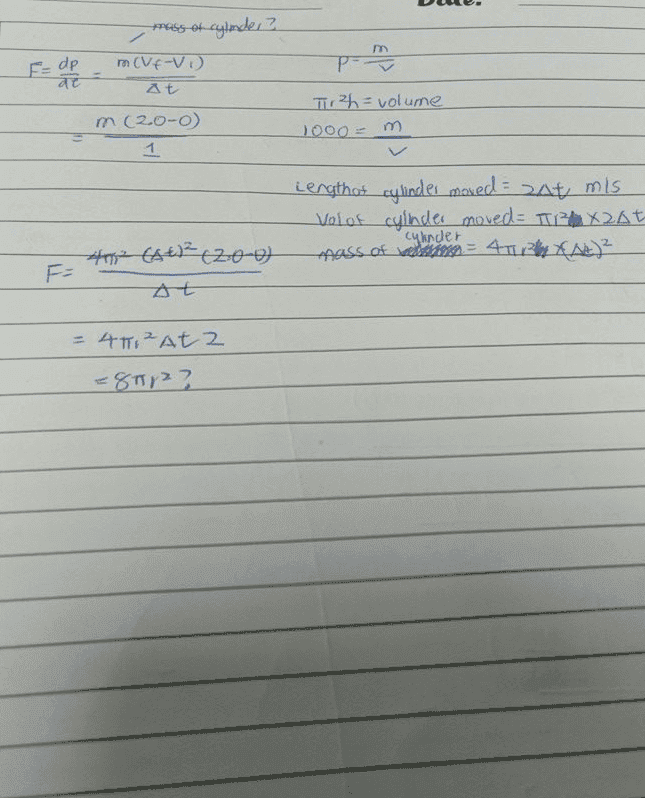 Date:
mass of cylinder?
F = dp/dt = m(Vf-Vi)/Δt
= m(2.0-0)/1
P = m/V
πr²h = volume
1000 = m/V
Length of cylinder moved = 2Δt m/s
Vol of cylinder moved = πr² × 2Δt
mass of cylinder = 4πr² × (Δt)²
F = 4πr² (Δt)² (2.0-0)/Δt
= 4πr² Δt 2
= 8πr²?